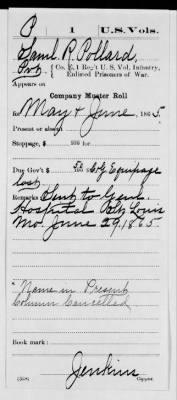 P | 1 | U.S. Vols.
Saml R. Pollard,
Pvt., { Co. E, 1 Reg't U. S. Vol. Infantry,
Enlisted Prisoners of War.
Appears on
Company Muster Roll
for May & June, 1865.
Present or absent
Stoppage, $ 100 for
Due Gov't $ 58/100 C/G Equipage
lost
Remarks: Sent to Genl
Hospital St. Louis
Mo. June 29, 1865
"Name in Present
Column Cancelled
Book mark:
Jenkins
(358) Copyist.